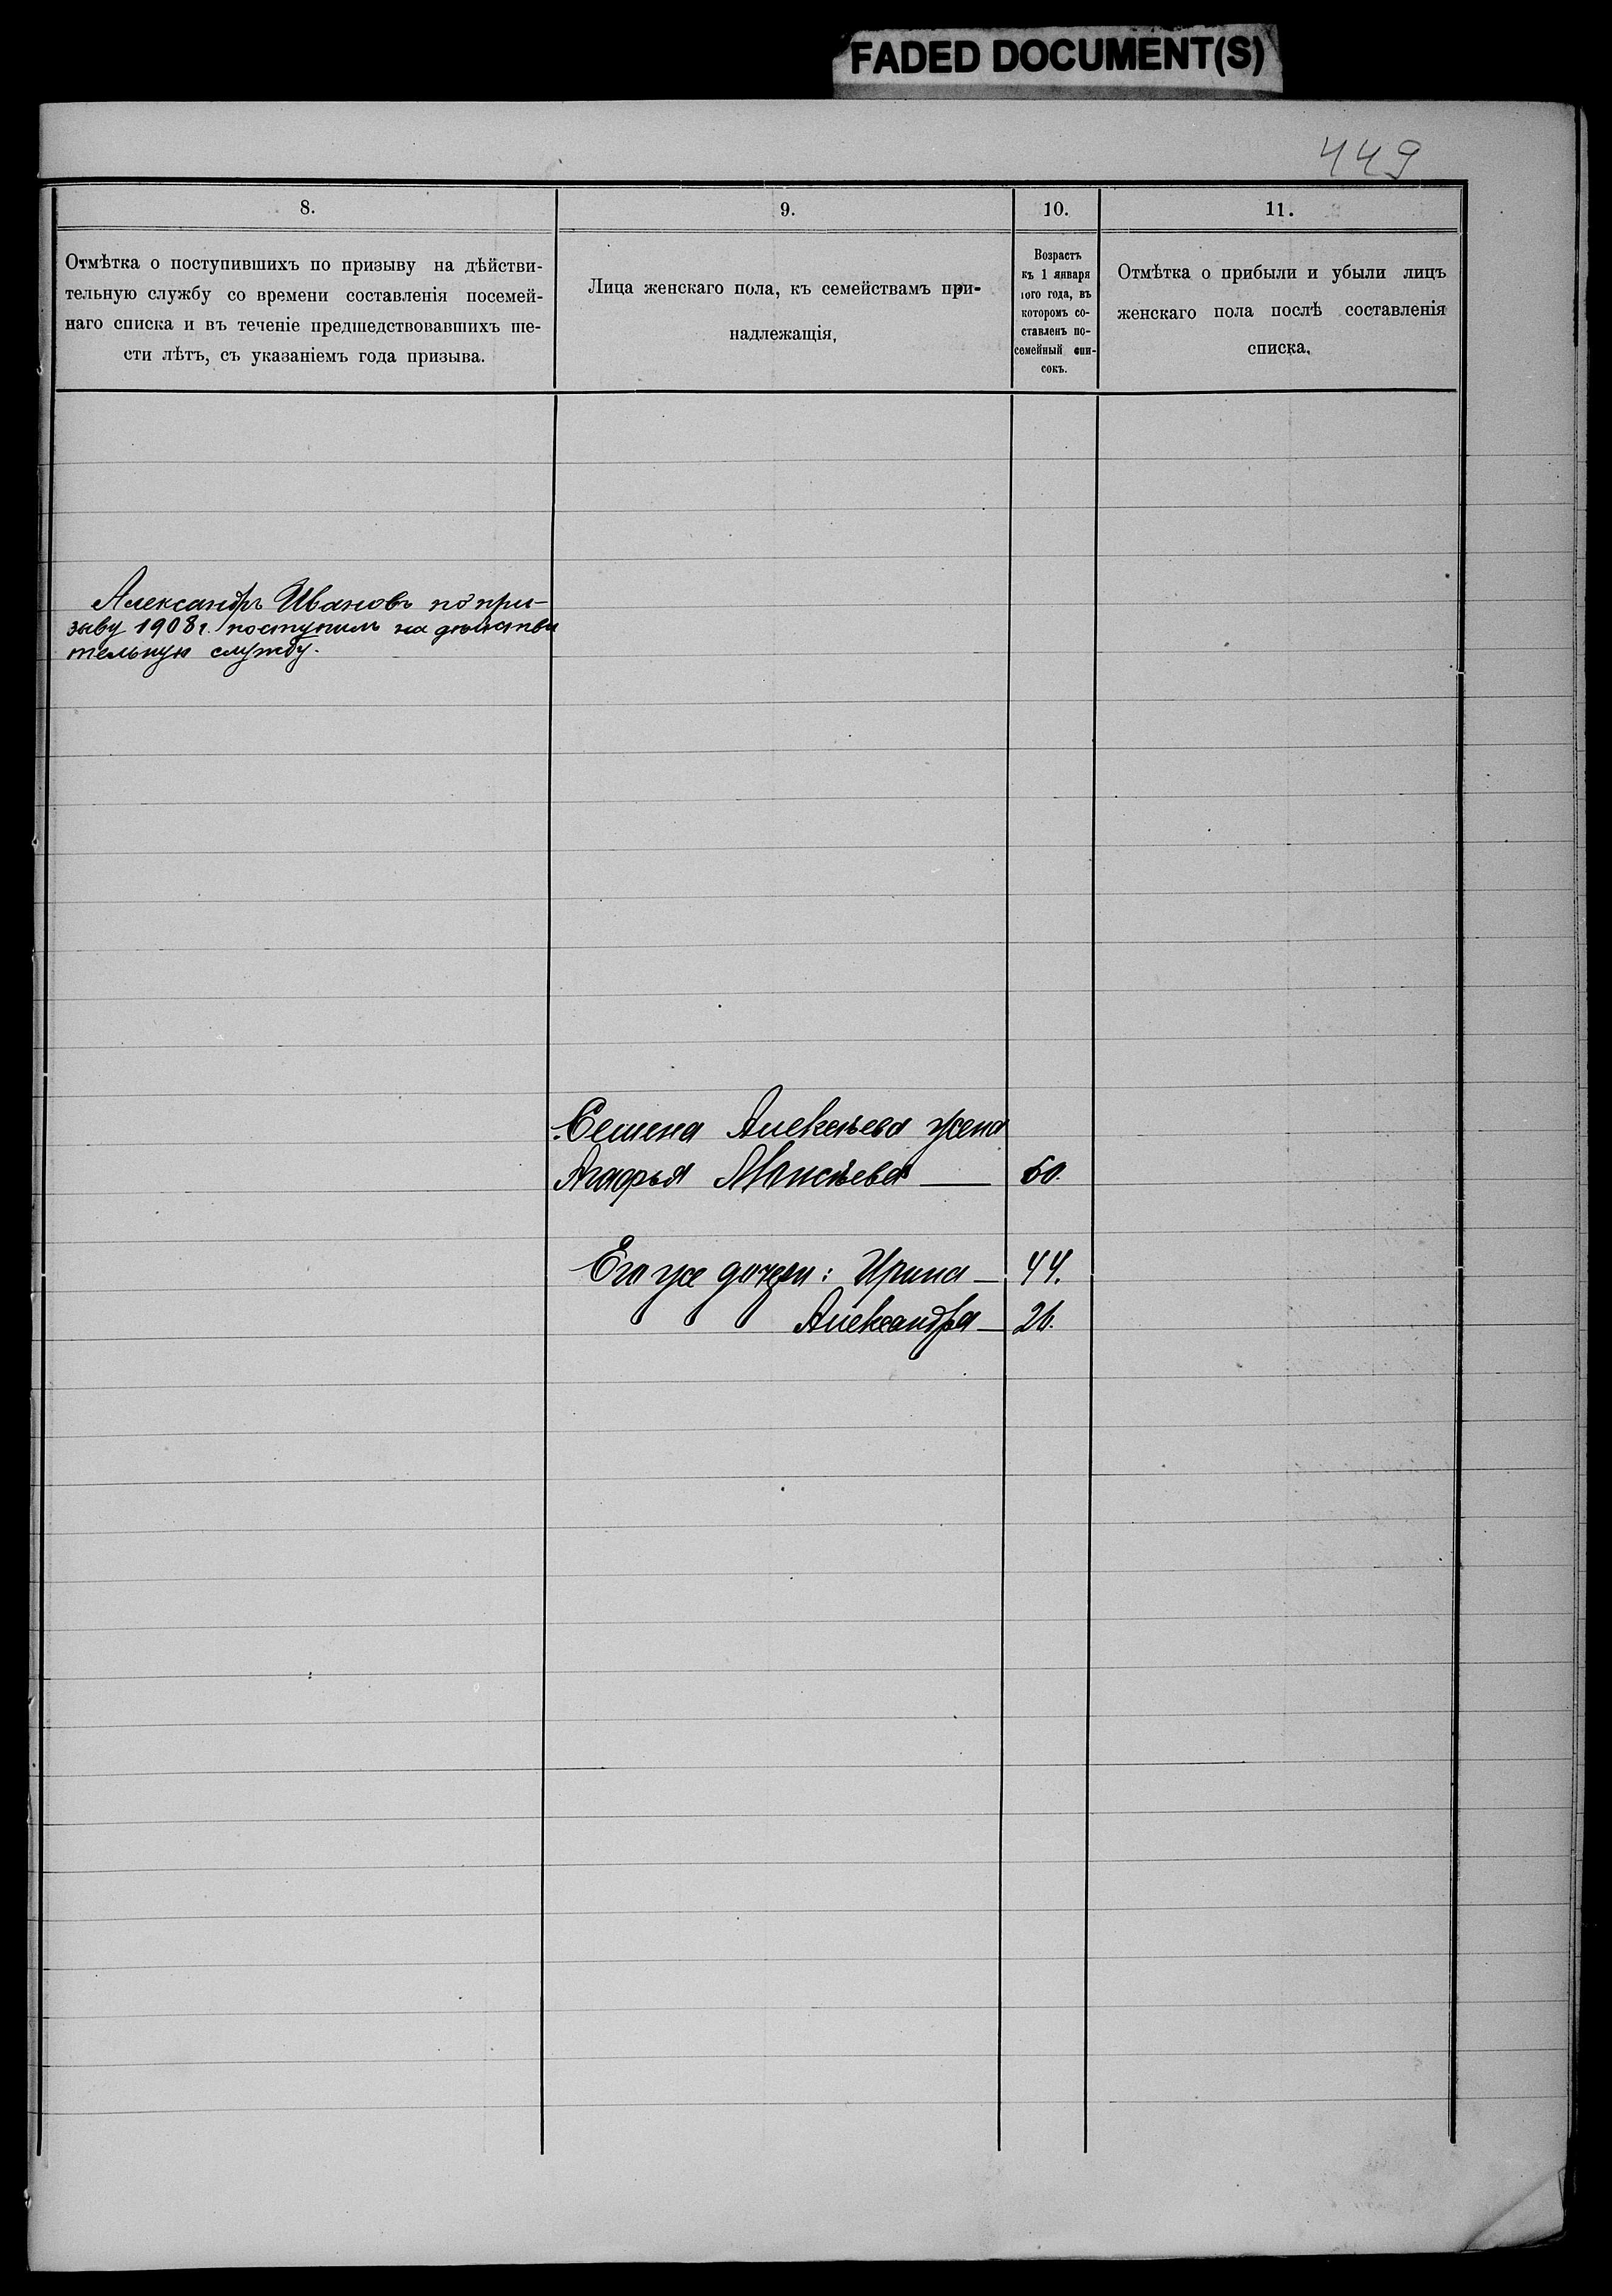 FADED DOCUMENT(S)
449
8.
Отмѣтка о поступившихъ по призыву на дѣйстви-
тельную службу со времени составленія посемей-
наго списка и въ теченіе предшедствовавшихъ ше-
сти лѣтъ, съ указаніемъ года призыва.
9.
Лица женскаго пола, къ семействамъ при-
надлежащія,
10.
Возрастъ
къ 1 января
того года, въ
которомъ со-
ставленъ по-
семейный спи-
сокъ.
11.
Отмѣтка о прибыли и убыли лицъ
женскаго пола послѣ составленія
списка.
Александръ Ивановъ по при-
зыву 1908 г. поступилъ на дѣйстви
тельную службу.
Семена Алексѣева жена
Агафья Моисѣева — 50.
Его же дочери: Ирина — 44.
Александра — 26.